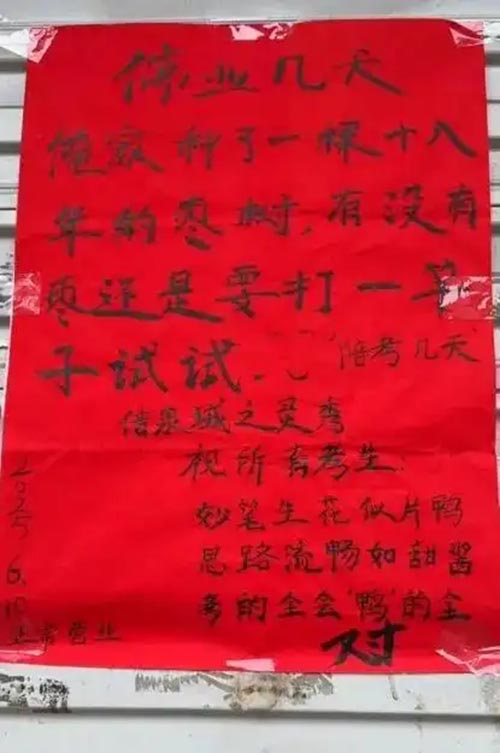 停业几天
俺家种了一棵十八
年的枣树,有没有
枣还是要打一竿
子试试..
陪考几天
借泉城之灵秀
祝所有考生:
妙笔生花似片鸭
思路流畅如甜酱
考的全会"鸭"的全
对
2025
6.10
正常营业